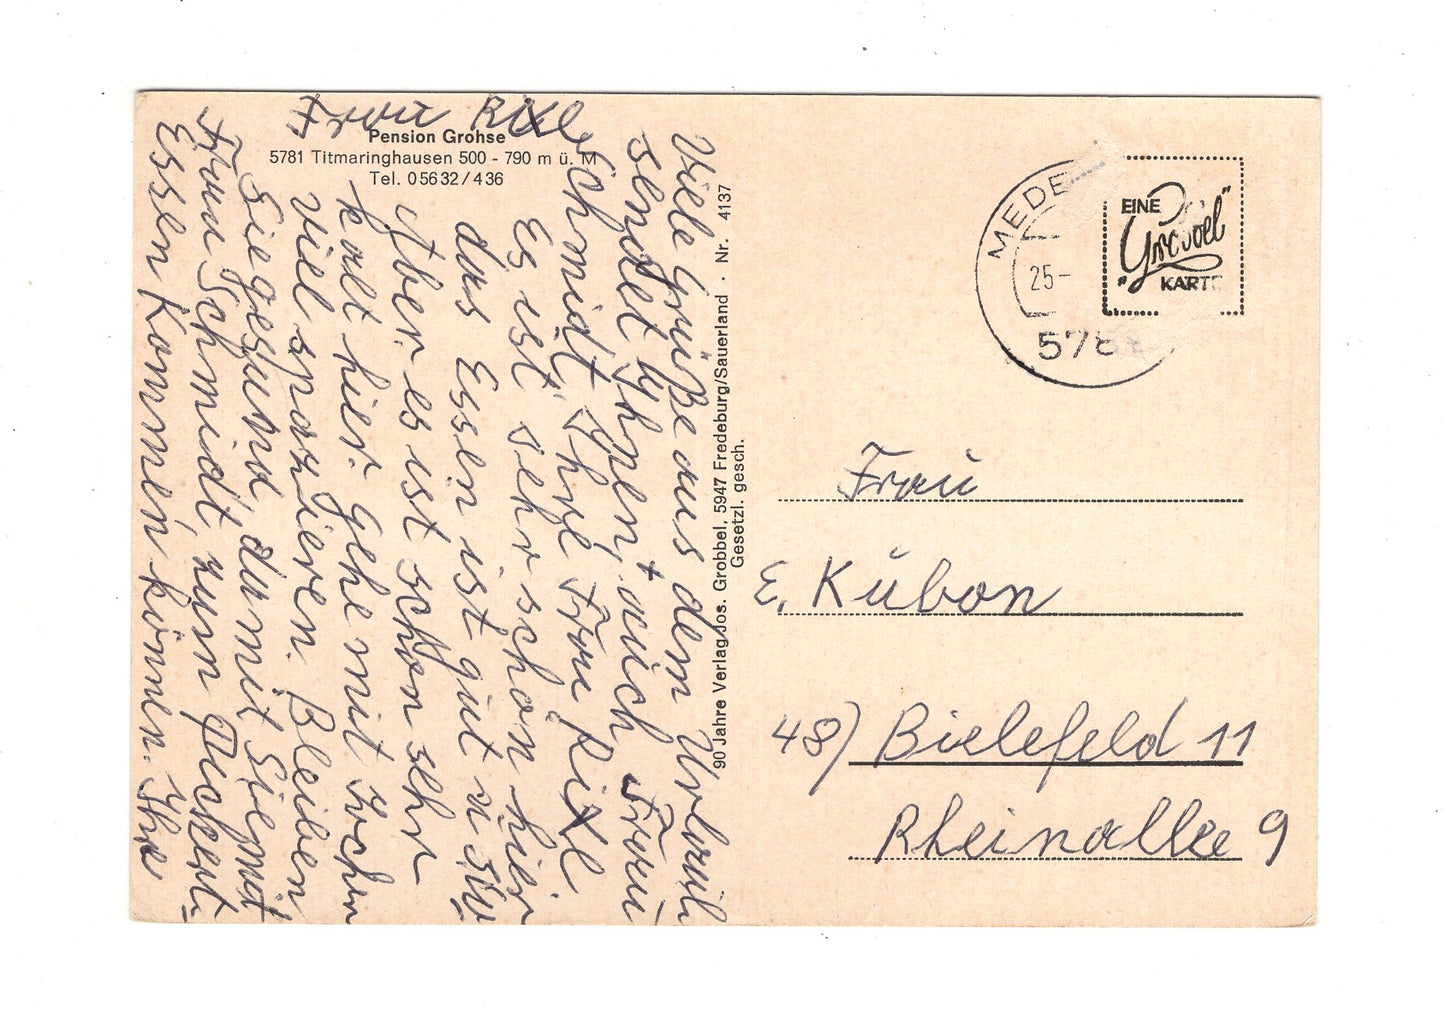 Pension Grohse
5781 Titmaringhausen 500 - 790 m ü. M
Tel. 05632/436
Viele Grüße aus dem Urlaub
sendet Ihnen, + auch Frau
Schmidt, Ihre Frau Rixe
Es ist sehr schön hier
das Essen ist gut
Aber es ist schon sehr
kalt hier. Gehe mit
viel spazieren. Bleiben
Sie gesund, damit Sie mit
Frau Schmidt, zum
Essen Kommen, können. Ihre
Frau Rixe
90 Jahre Verlag Jos. Grobbel, 5947 Fredeburg/Sauerland · Nr. 4137
Gesetzl. gesch.
MEDE
25-
578
EINE
"Grobbel"
KARTE
Frau
E. Kübon
48) Bielefeld 11
Rheinallee 9